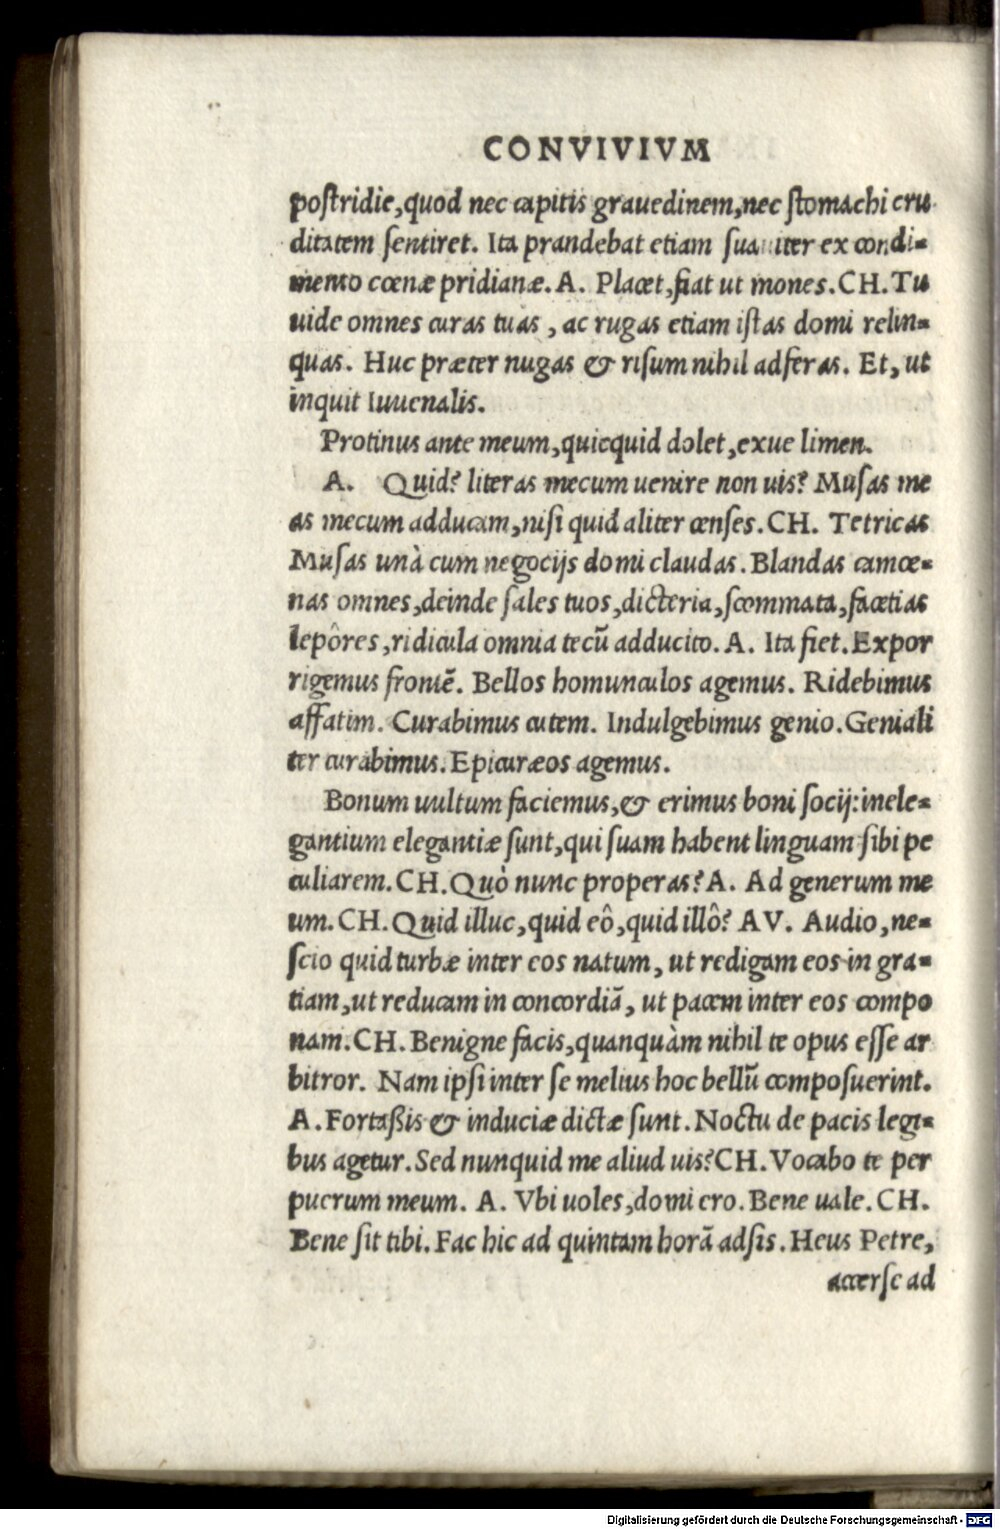 CONVIVIVM
postridie,quod nec capitis grauedinem,nec stomachi cru
ditatem sentiret. Ita prandebat etiam suauiter ex condi=
mento cœnæ pridianæ. A. Placet,fiat ut mones. CH. Tu
uide omnes curas tuas , ac rugas etiam istas domi relin=
quas. Huc præter nugas & risum nihil adferas. Et, ut
inquit Iuuenalis.
Protinus ante meum,quicquid dolet,exue limen.
A. Quid? literas mecum uenire non uis? Musas me
as mecum adducam,nisi quid aliter censes. CH. Tetricas
Musas unà cum negocijs domi claudas. Blandas camœ=
nas omnes,deinde sales tuos,dicteria,scommata,facetias
lepôres,ridicula omnia tecũ adducito. A. Ita fiet. Expor
rigemus frontẽ. Bellos homunculos agemus. Ridebimus
affatim. Curabimus cutem. Indulgebimus genio. Geniali
ter curabimus. Epicuræos agemus.
Bonum uultum faciemus,& erimus boni socij: inele=
gantium elegantiæ sunt,qui suam habent linguam sibi pe
culiarem. CH. Quò nunc properas? A. Ad generum me
um. CH. Quid illuc,quid eô,quid illô? AV. Audio,ne=
scio quid turbæ inter eos natum, ut redigam eos in gra=
tiam,ut reducam in concordiã, ut pacem inter eos compo
nam. CH. Benigne facis,quanquàm nihil te opus esse ar
bitror. Nam ipsi inter se melius hoc bellũ composuerint.
A. Fortaßis & induciæ dictæ sunt. Noctu de pacis legi=
bus agetur. Sed nunquid me aliud uis? CH. Vocabo te per
puerum meum. A. Vbi uoles,domi ero. Bene uale. CH.
Bene sit tibi. Fac hic ad quintam horã adsis. Heus Petre,
accerse ad
Digitalisierung gefördert durch die Deutsche Forschungsgemeinschaft - DFG